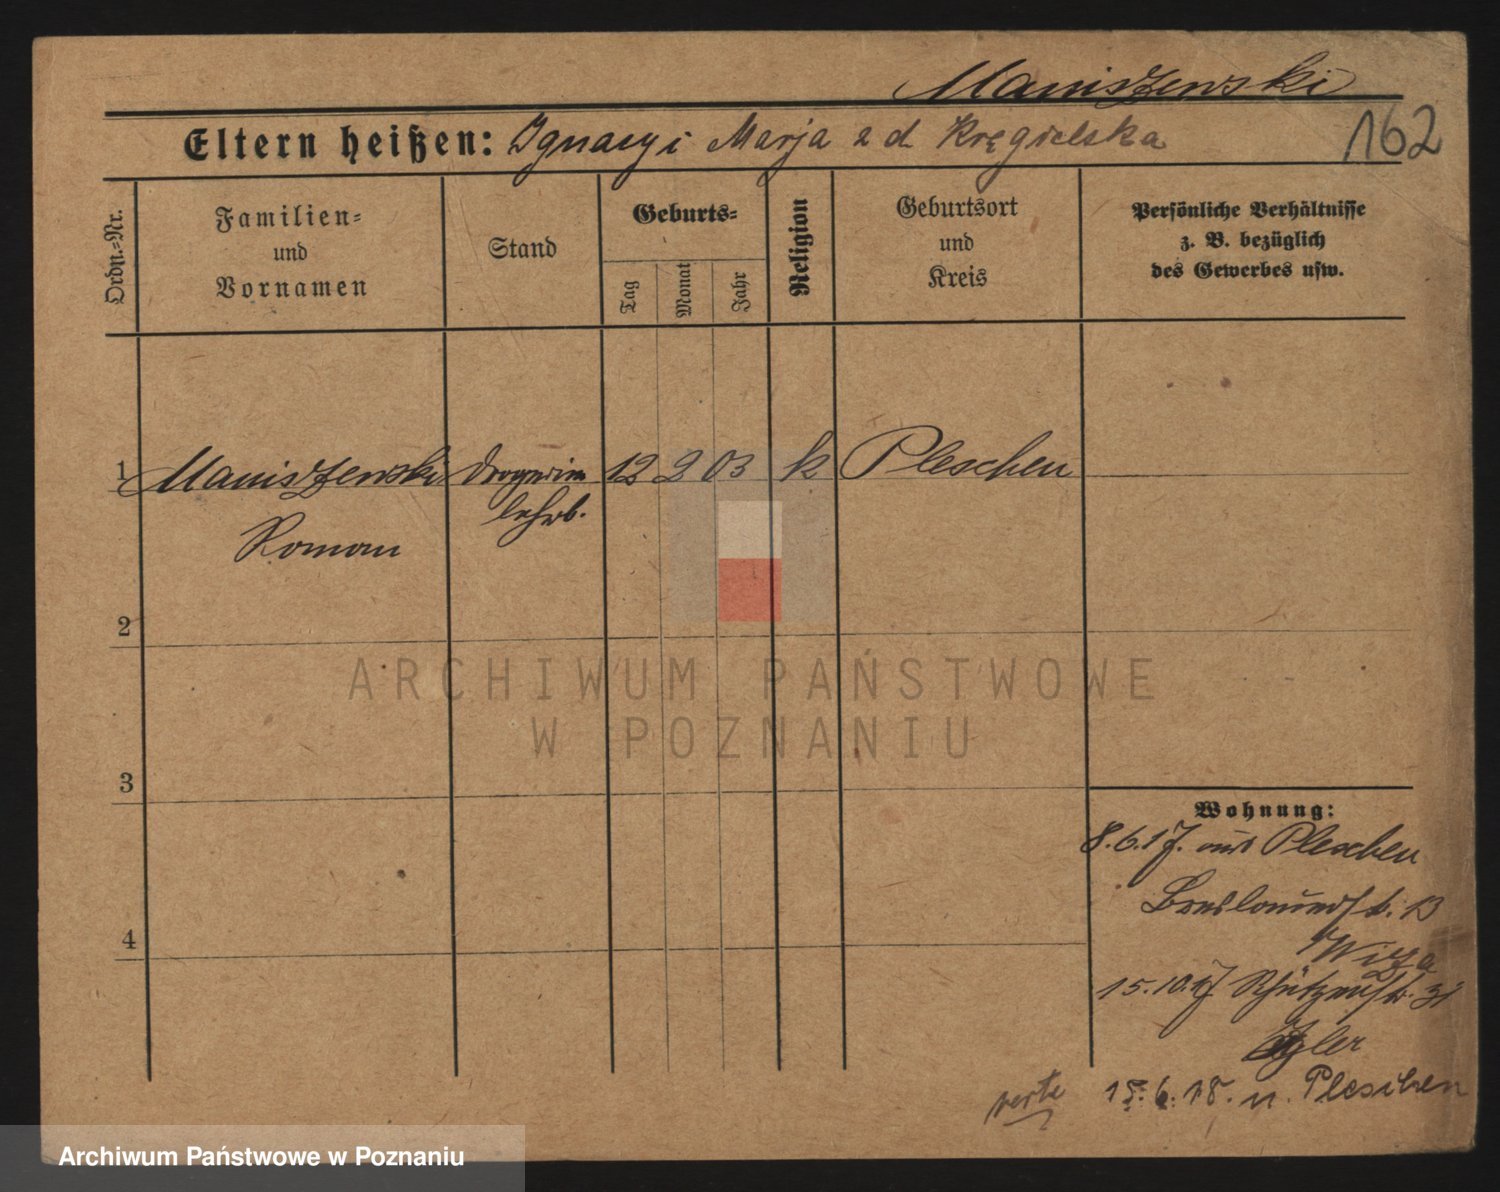 Maniszewski
162
Eltern heißen: Ignacy i Marja z d Kręgielska
Ordn.-Nr.
Familien- und Vornamen
Stand
Geburts-
Tag
Monat
Jahr
Religion
Geburtsort und Kreis
Persönliche Verhältnisse
z. B. bezüglich
des Gewerbes usw.
1 Maniszewski Drogerie 12 2 03 k Pleschen
Roman lehrl.
2
3
4
ARCHIWUM PAŃSTWOWE
W POZNANIU
Wohnung:
8.6.17. aus Pleschen
Breslauerstr. 13
Wiza
15.10.17 Schützenstr. 31
15.6.18. n. Pleschen
verte
Archiwum Państwowe w Poznaniu